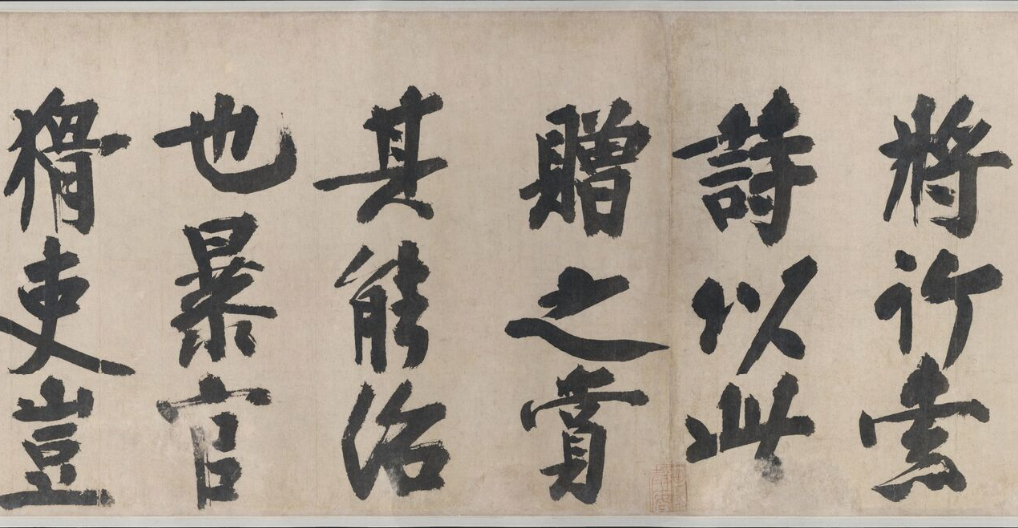 將行索
詩以此
贈之賞
其能治
也暴官
猾吏豈